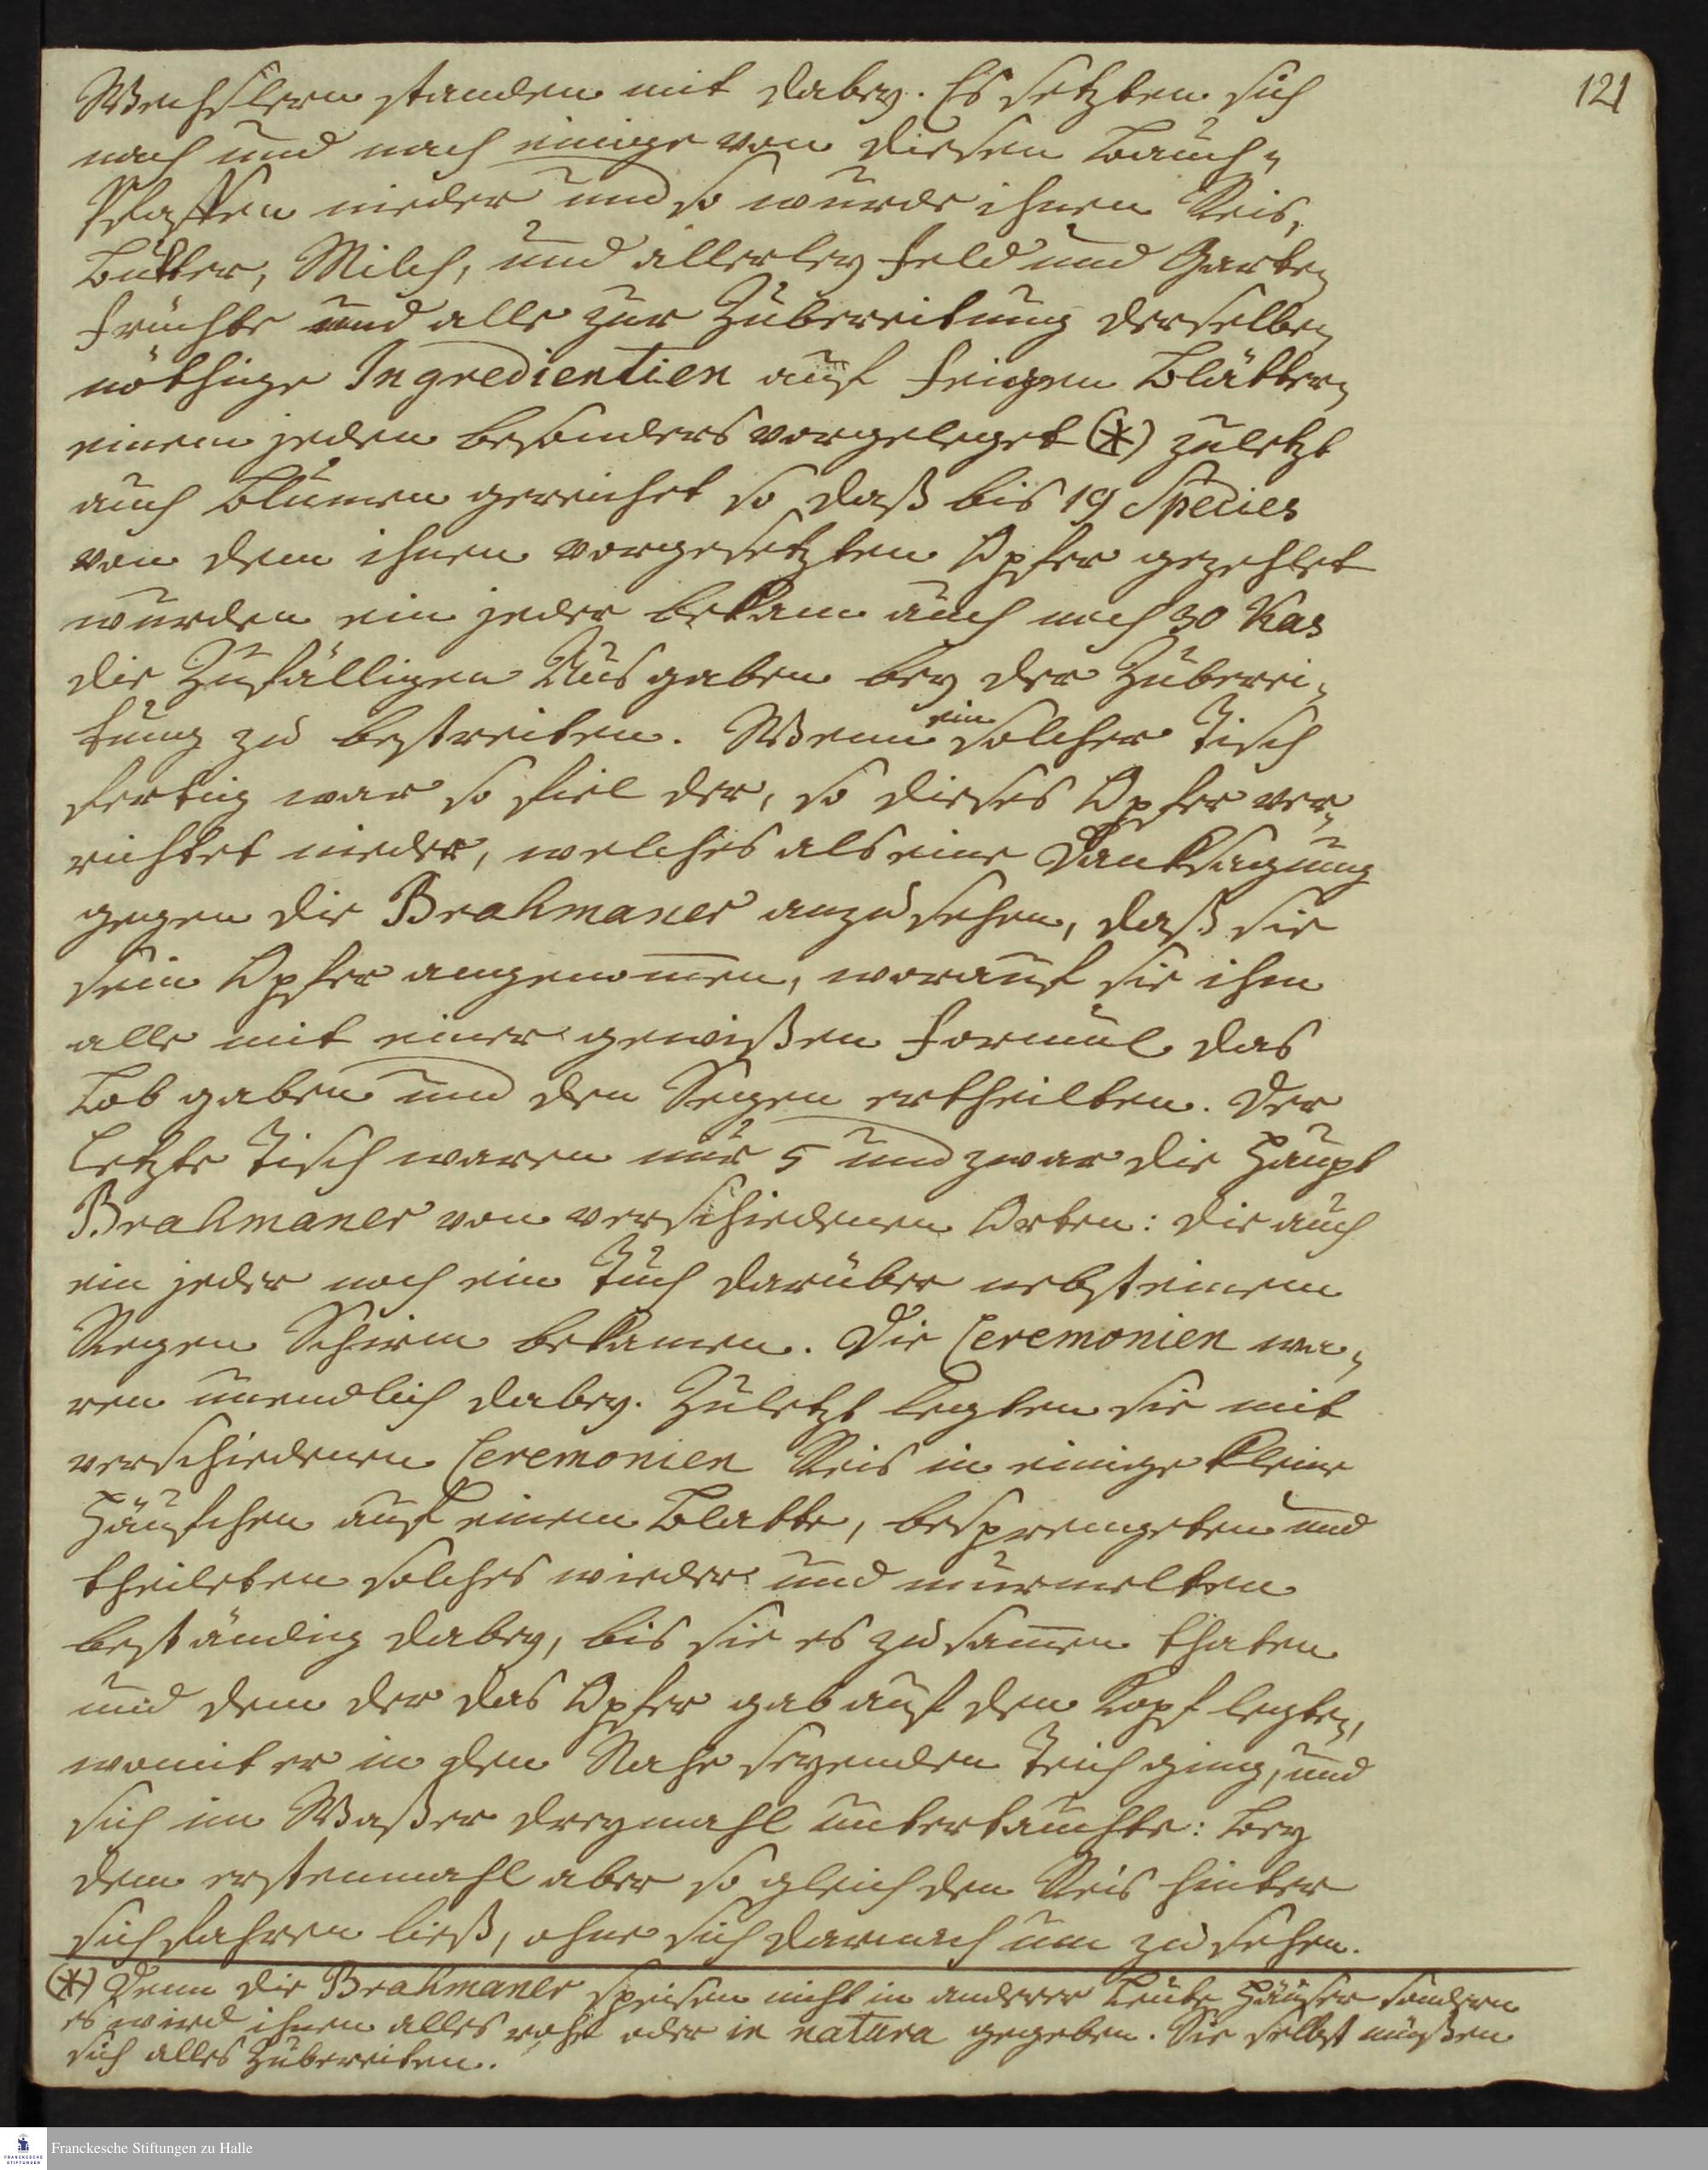 121
Wechslern standen mit dabey. Es setzten sich
nach und nach einige von diesen Bauch-
Pfaffen nieder und so wurde ihnen Reis,
Butter, Milch, und allerley Feld und Garten
Früchte und alle zur Zubereitung derselben
nöthige Ingredientien auf Feigen Blättern
einem jeden besonders vorgeleget (*) zuletzt
auch Blumen gereichet so daß bis 19 Species
von dem ihnen vorgesetzten Opfer gezehlet
wurden ein jeder bekam auch noch 30 Kas
die Zufälligen Ausgaben bey der Zuberei-
tung zu bestreiten. Wenn ein solcher Tisch
fertig war so fiel der, so dieses Opfer ver-
richtet nieder, welches als eine Danksagung
gegen die Brahmaner anzusehen, daß sie
sein Opfer angenommen, worauf sie ihm
alle mit einer gewißen Formul das
Lob gaben und den Segen ertheilten. Der
letzte Tisch waren nur 5 und zwar die Haupt
Brahmaner von verschiedenen Orten: die auch
ein jeder noch ein Tuch darüber nebst einem
Regen Schirm bekamen. Die Ceremonien wa-
ren unendlich dabey. Zuletzt legten sie mit
verschiedenen Ceremonien Reis in einige kleine
Häufchen auf einem Blatte, besprengeten und
theileten solches wieder und murmelten
beständig dabey, bis sie es zusammen thaten
und dem der das Opfer gab auf den Kopf legten,
womit er in den Nahe seyenden Teich ging, und
sich im Waßer dreymahl untertauchte: Bey
dem erstenmahl aber so gleich den Reis hinter
sich fahren ließ, ohne sich darnach um zu sehen.
(*) Denn die Brahmaner speisen nicht in anderer Leute Häuser sondern
es wird ihnen alles roh oder in natura gegeben. Sie selbst müßen
sich alles Zubereiten.
Franckesche Stiftungen zu Halle
FRANCKESCHE
STIFTUNGEN